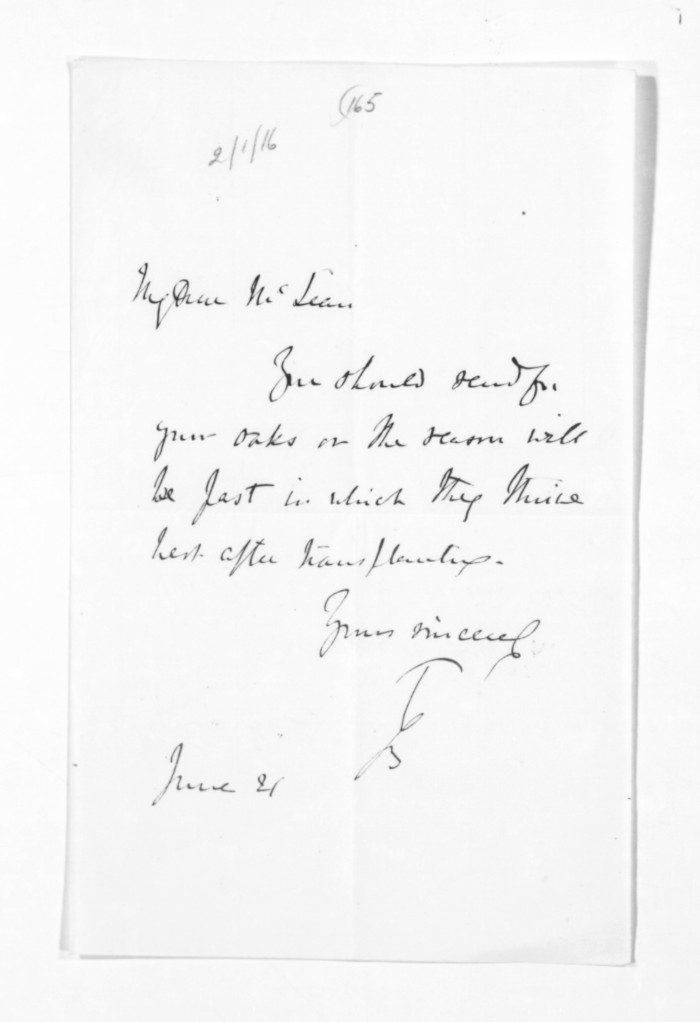 (165
2/1/16
My Dear McLean
You should send for
your oaks or the season will
be past in which they thrive
best after transplanting.
Yours sincerely
June 21